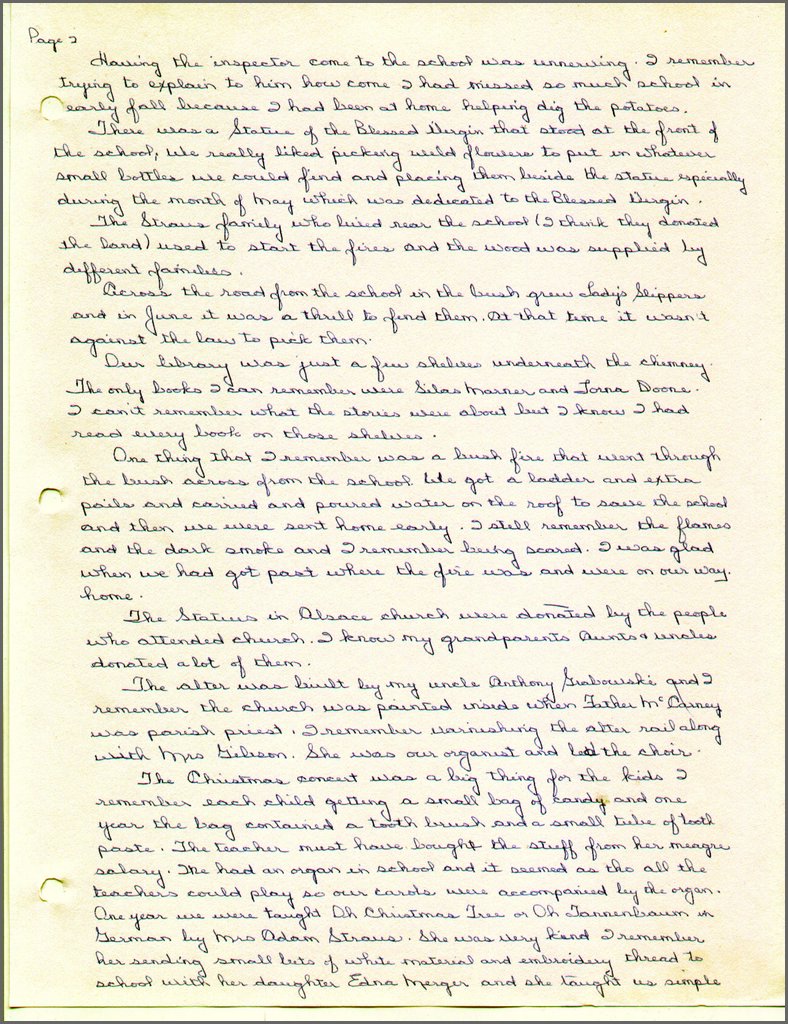 Page 2
Having the inspector come to the school was unnerving. I remember
trying to explain to him how come I had missed so much school in
early fall because I had been at home helping dig the potatoes.
There was a Statue of the Blessed Virgin that stood at the front of
the school, We really liked picking wild flowers to put in whatever
small bottles we could find and placing them beside the statue especially
during the month of May which was dedicated to the Blessed Virgin.
The Straus family who lived near the school (I think they donated
the land) used to start the fires and the wood was supplied by
different families.
Across the road from the school in the bush grew Lady's Slippers
and in June it was a thrill to find them. At that time it wasn't
against the law to pick them.
Our library was just a few shelves underneath the chimney.
The only books I can remember were Silas Marner and Lorna Doone.
I can't remember what the stories were about but I know I had
read every book on those shelves.
One thing that I remember was a bush fire that went through
the bush across from the school. We got a ladder and extra
pails and carried and poured water on the roof to save the school
and then we were sent home early. I still remember the flames
and the dark smoke and I remember being scared. I was glad
when we had got past where the fire was and were on our way
home.
The Statues in Alsace church were donated by the people
who attended church. I know my grandparents Aunts & uncles
donated a lot of them.
The alter was built by my uncle Anthony Grabowski and I
remember the church was painted inside when Father McCarney
was parish priest. I remember varnishing the alter rail along
with Mrs Gibson. She was our organist and led the choir.
The Christmas concert was a big thing for the kids I
remember each child getting a small bag of candy and one
year the bag contained a tooth brush and a small tube of tooth
paste. The teacher must have bought the stuff from her meagre
salary. We had an organ in school and it seemed as tho all the
teachers could play so our carols were accompanied by the organ.
One year we were taught Oh Christmas Tree or Oh Tannenbaum in
German by Mrs Adam Straus. She was very kind I remember
her sending small bits of white material and embroidery thread to
school with her daughter Edna Merger and she taught us simple